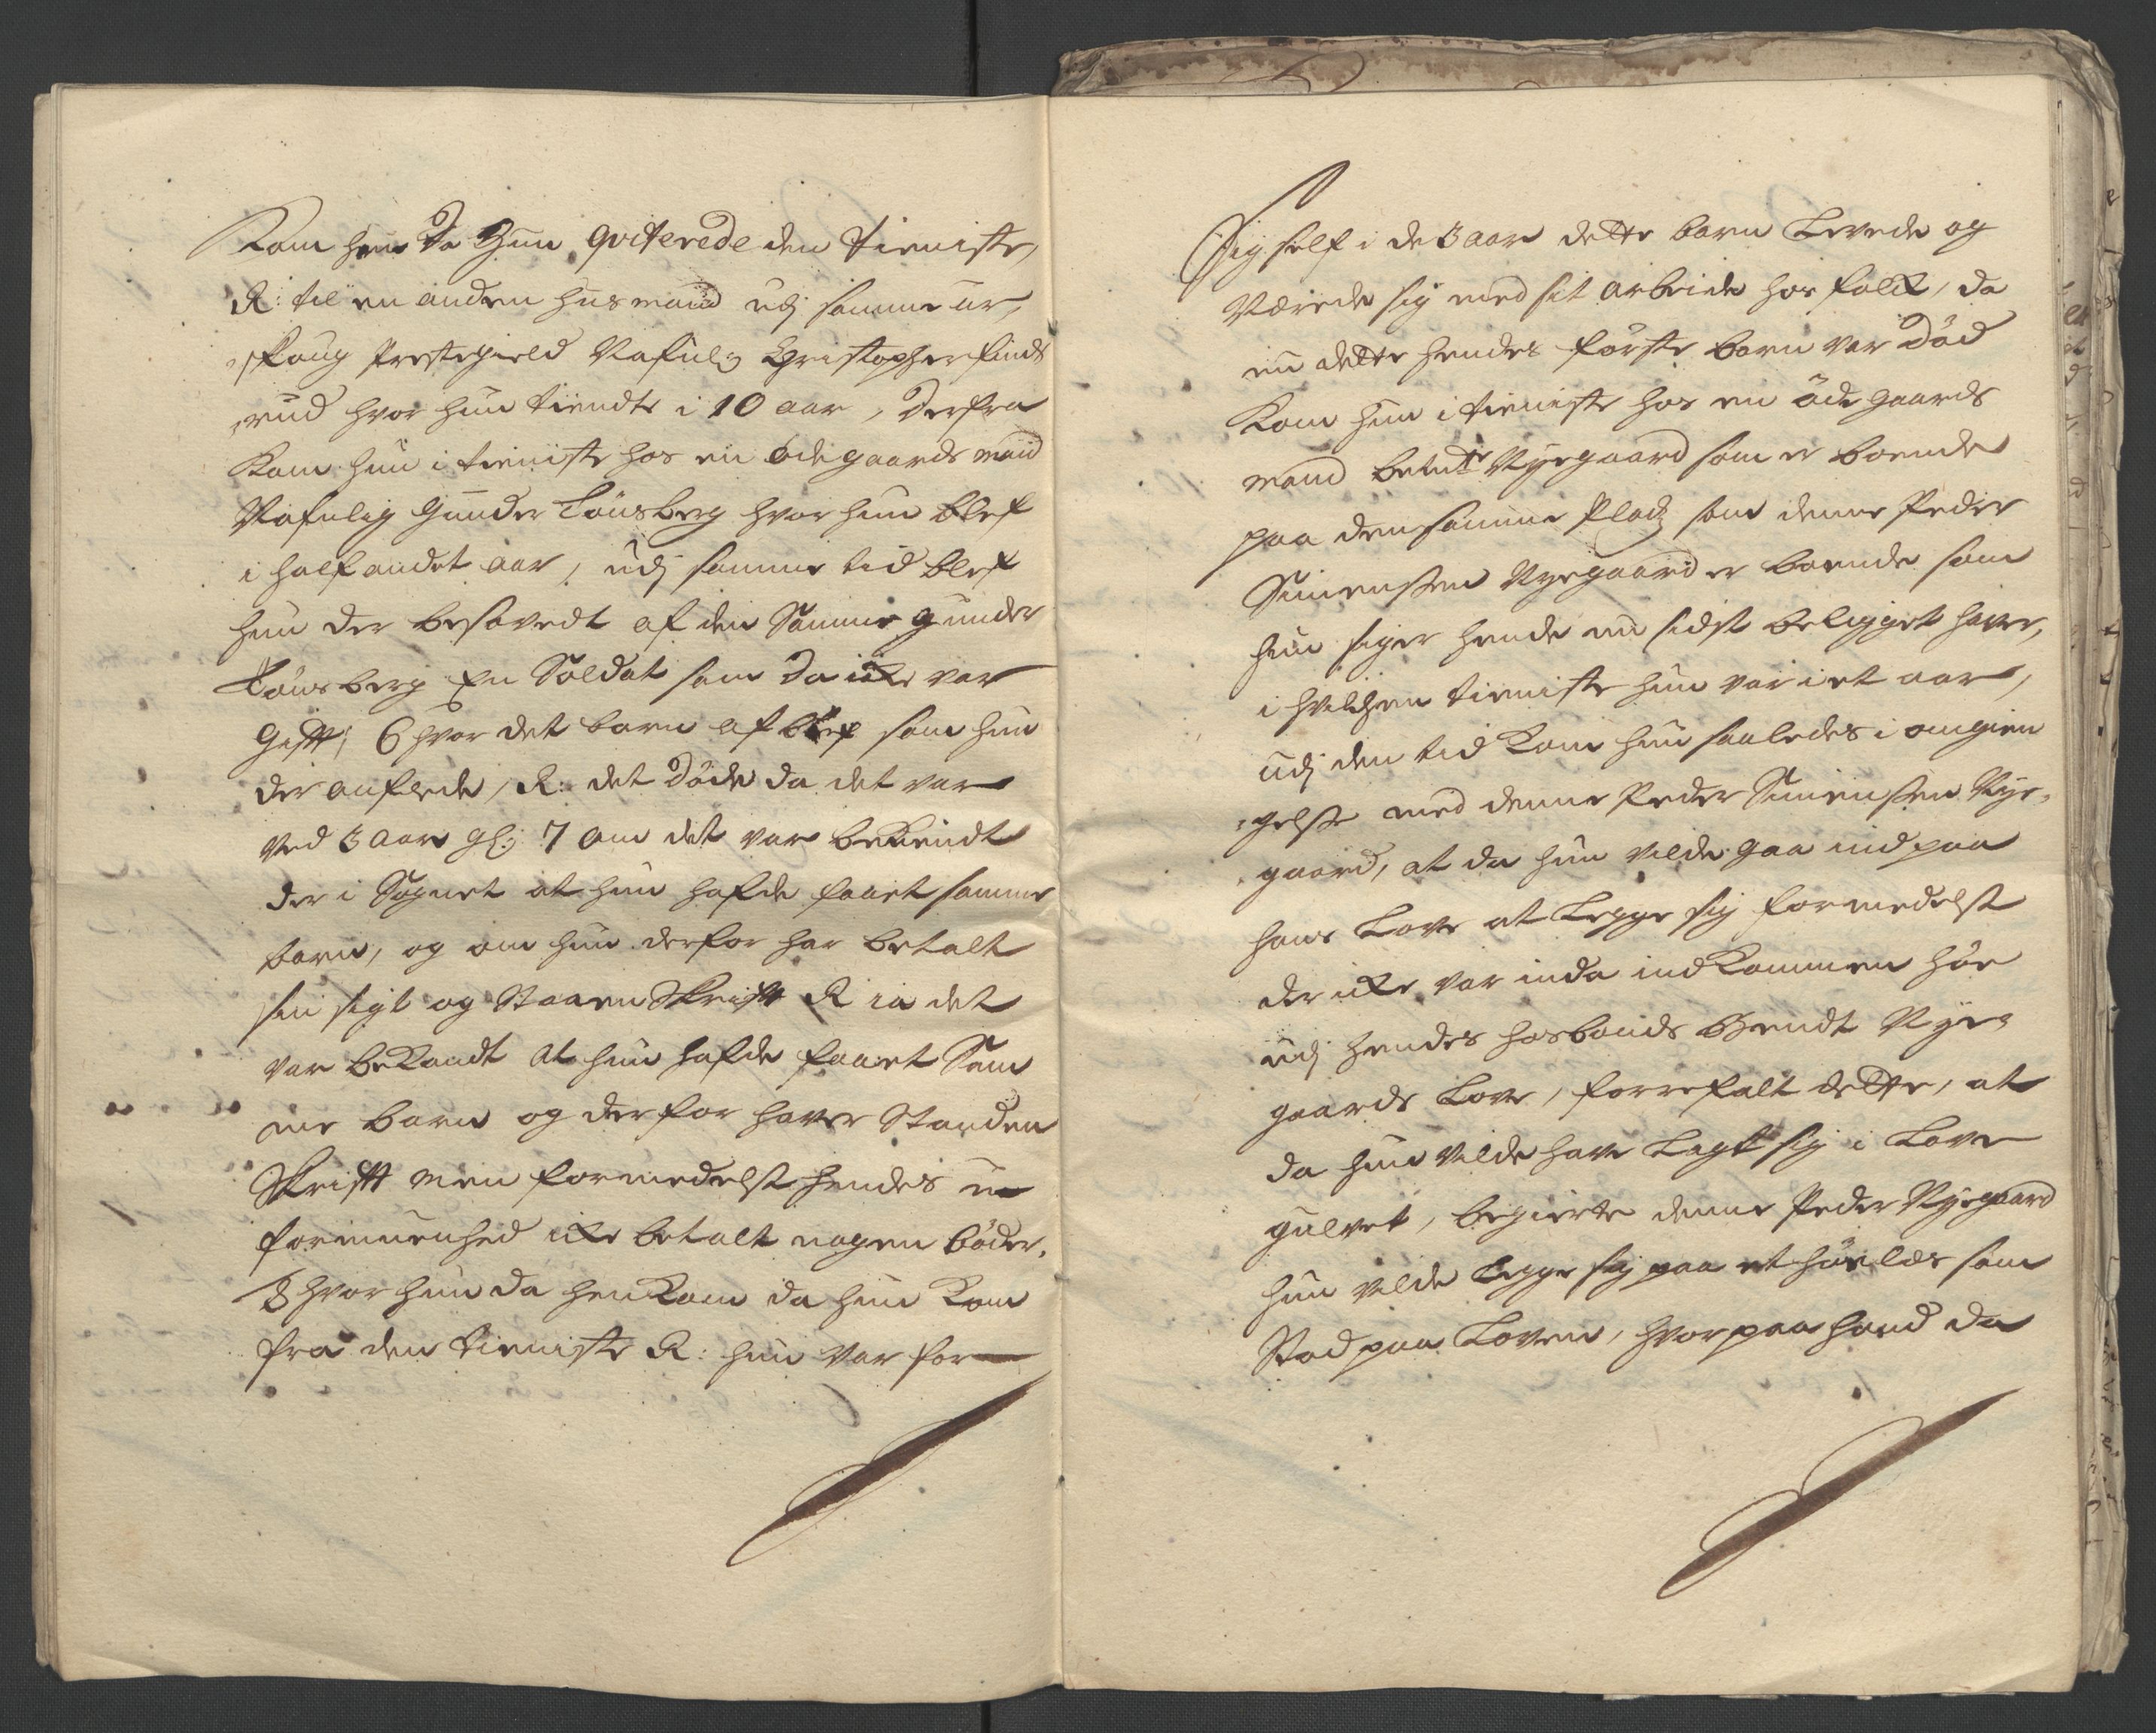 Kom hen da Hun qviterede den tieniste,
R: til en anden husmand udj samme ur,
skoug Prestegield Nafnl: Christopher finds
rud hvor hun tiendte i 10 aar, Derfra
Kom hun i tieniste hos en ödegaards mand
Nafnlig Gunder Lönsberg hvor hun blef
i half andet aar, udj samme tid blef
hun der besovedt af den Samme gunder
Lönsberg En Soldat som da icke var
gift; 6 hvor det barn af blef som hun
der auflede, R: det Döde da det var
ved 3 aar gl: 7 om det var bekiendt
der i Sognet at hun hafde faaet samme
barn, og om hun derfor har betalt
sin sigt og Staaen Skrift R ia det
var bekandt at hun hafde faaet Sam
me barn og derfor haver Standen
Skrift men formedelst hendes u
formuenhed icke betalt nogen böder.
8 hvor hun da hen kom da hun kom
fra den tieniste R: hun var for
Sig self i de 3 aar dette barn Levede og
Nærede sig med sit arbeide hos folck, da
nu dette hendes förste barn var Död
Kom hun i tieniste hos en öde gaards
mand Bendte Nyegaard som er boende
paa den samme Plads som denne Peder
Simensen Nyegaard er boende som
hun siger hende nu sidst beligget haver,
i hvilchen tieniste hun var i et aar,
udj den tid kom hun saaledes i omgien
gelse med denne Peder Simensen Nye,
gaard, at da hun vilde gaa ind paa
hans Lave at Legge sig formedelst
der icke var enda indkommen höe
udj hendes hosbonds Bendt Nye
gaards Lave, forrefalt dette, at
da hun vilde have Lagt sig i Lave
gulvet, begierte denne Peder Nyegaard
hun vilde Legge sig paa et höe læs som
Stod paa Loven, hvorpaa hand da